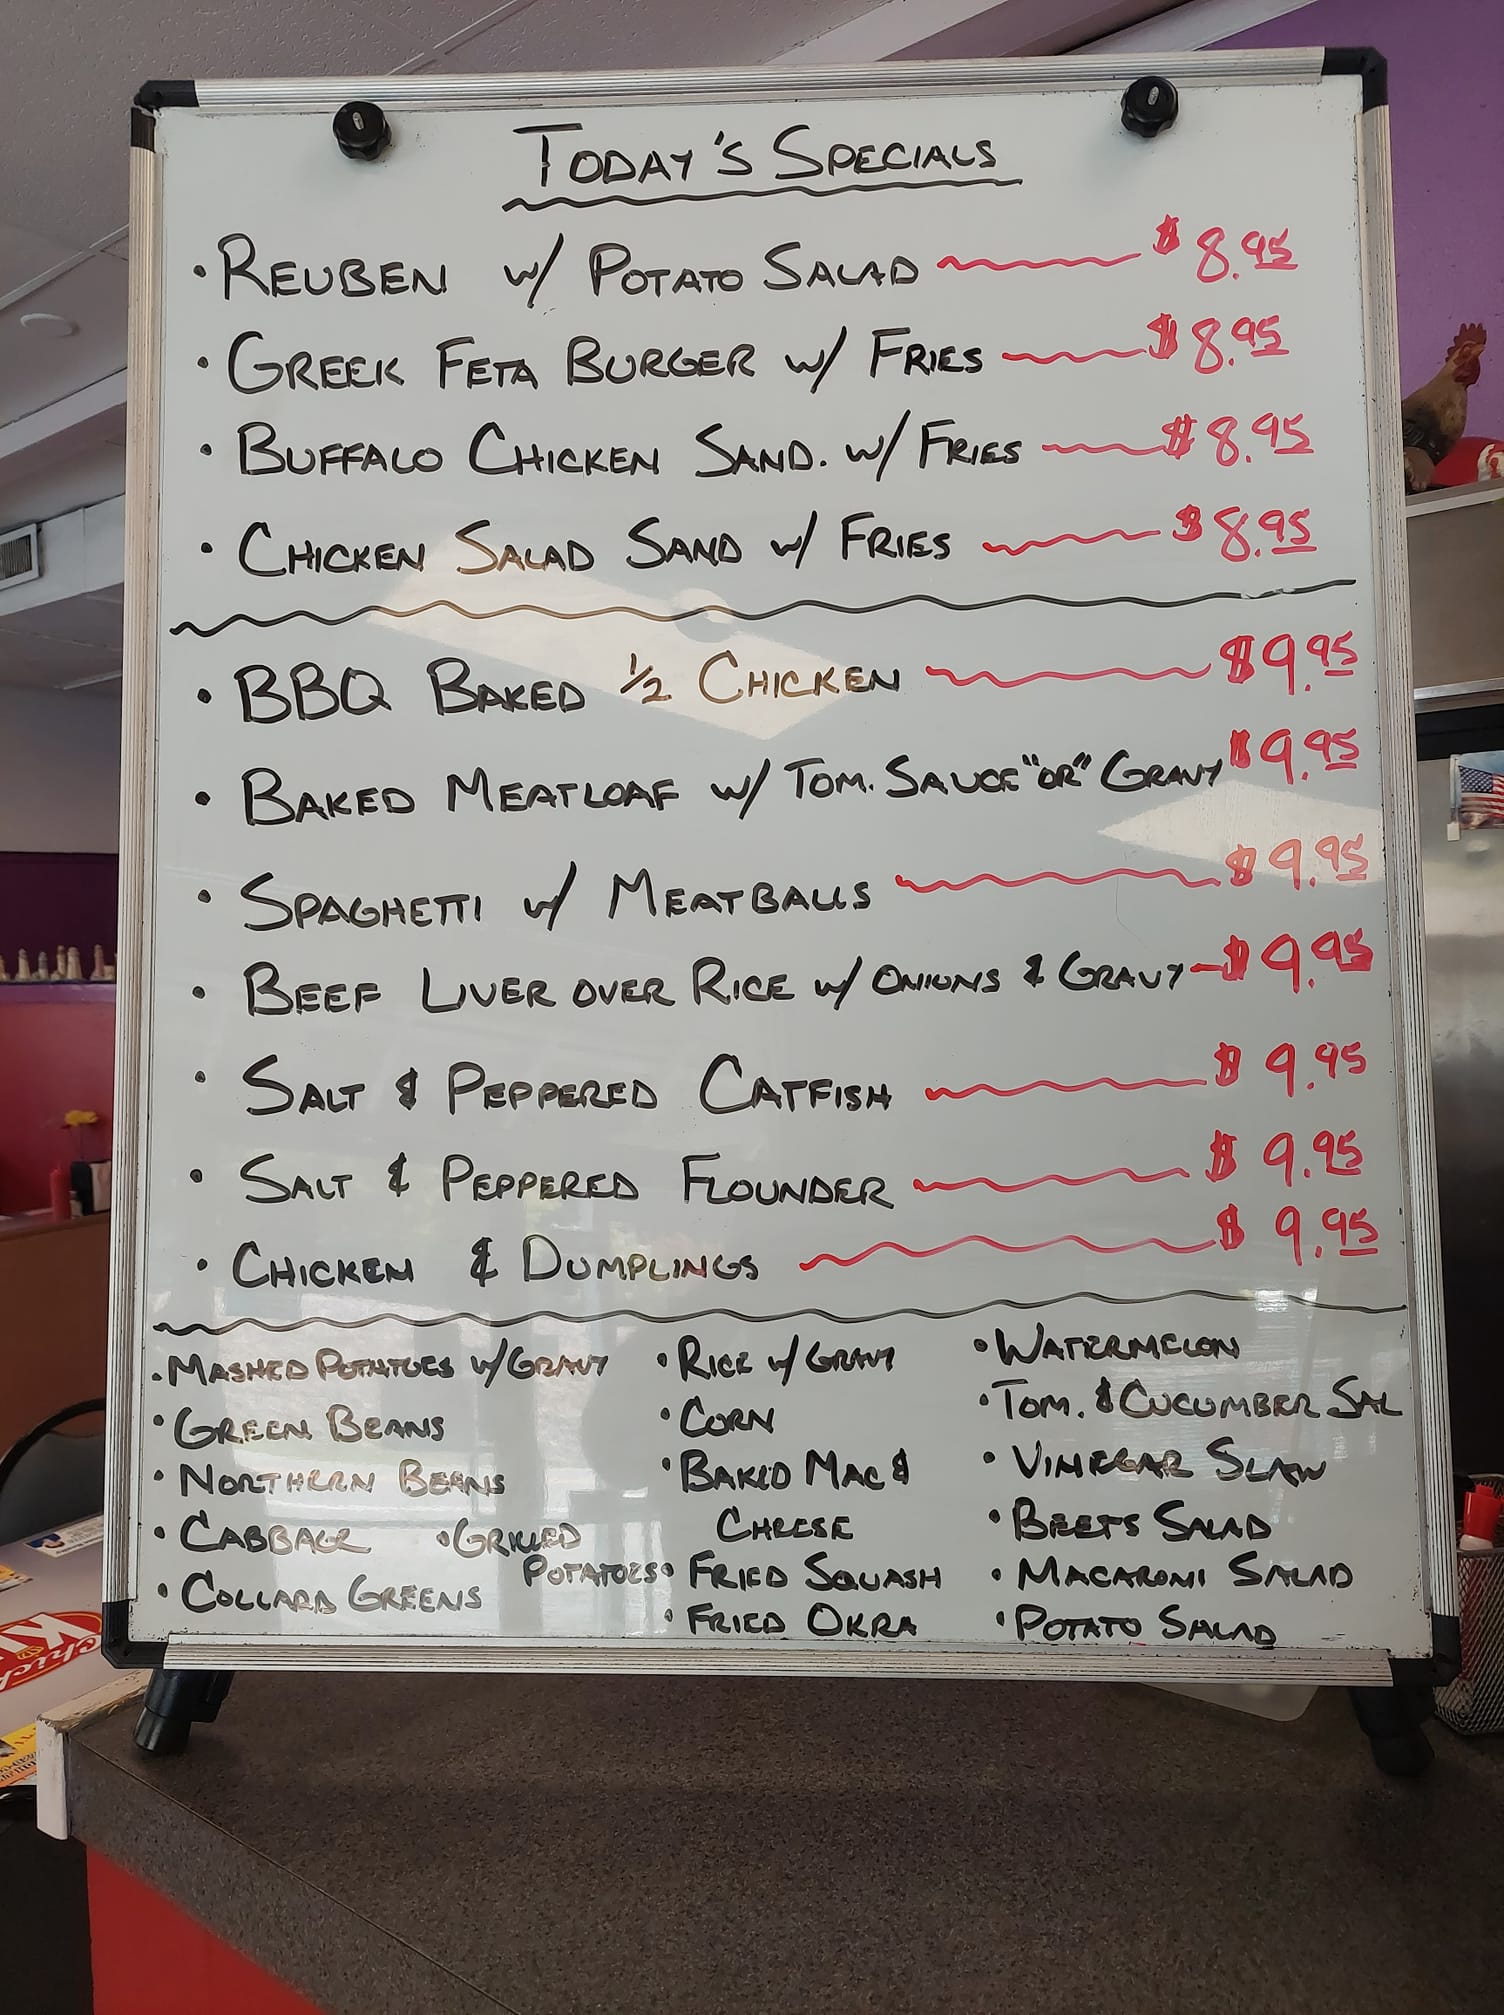 TODAY'S SPECIALS
• REUBEN w/ POTATO SALAD $8.95
• GREEK FETA BURGER w/ FRIES $8.95
• BUFFALO CHICKEN SAND. w/ FRIES $8.95
• CHICKEN SALAD SAND w/ FRIES $8.95
• BBQ BAKED 1/2 CHICKEN $9.95
• BAKED MEATLOAF w/ TOM. SAUCE "OR" GRAVY $9.95
• SPAGHETTI w/ MEATBALLS $9.95
• BEEF LIVER OVER RICE w/ ONIONS & GRAVY $9.95
• SALT & PEPPERED CATFISH $9.95
• SALT & PEPPERED FLOUNDER $9.95
• CHICKEN & DUMPLINGS $9.95
• MASHED POTATOES w/ GRAVY
• GREEN BEANS
• NORTHERN BEANS
• CABBAGE
• GRILLED
POTATOES
• COLLARD GREENS
• RICE w/ GRAVY
• CORN
• BAKED MAC &
CHEESE
• FRIED SQUASH
• FRIED OKRA
• WATERMELON
• TOM. & CUCUMBER SAL
• VINEGAR SLAW
• BEETS SALAD
• MACARONI SALAD
• POTATO SALAD